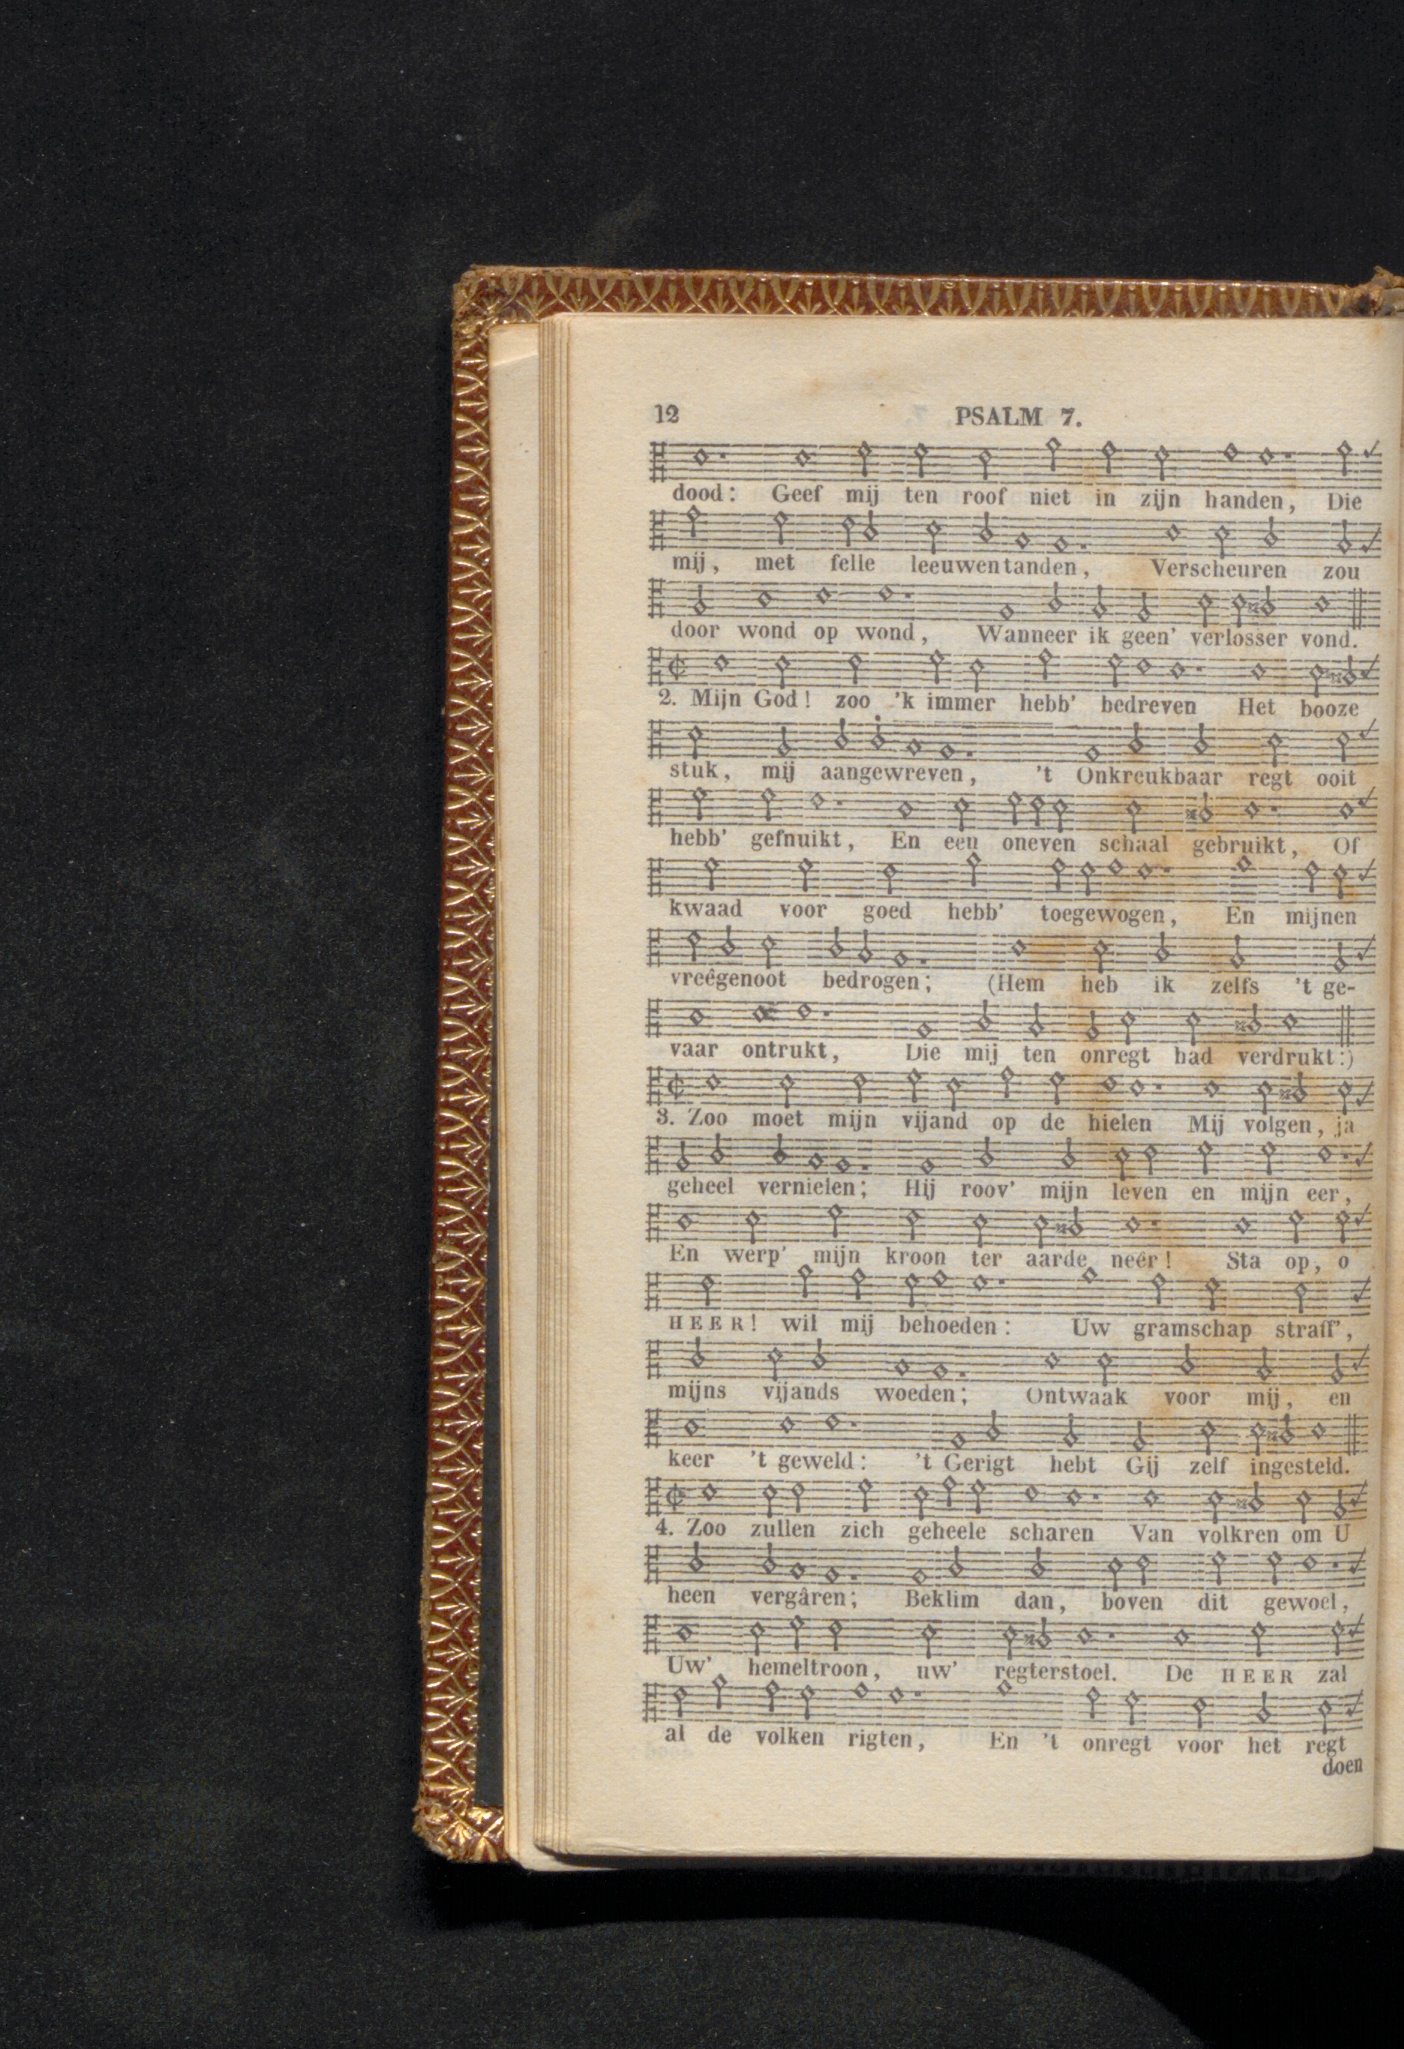 12 PSALM 7.
dood: Geef mij ten roof niet in zijn handen, Die
mij, met felle leeuwentanden, Verscheuren zou
door wond op wond, Wanneer ik geen' verlosser vond.
2. Mijn God! zoo 'k immer hebb' bedreven Het booze
stuk, mij aangewreven, 't Onkreukbaar regt ooit
hebb' gefnuikt, En een oneven schaal gebruikt, Of
kwaad voor goed hebb' toegewogen, En mijnen
vreêgenoot bedrogen; (Hem heb ik zelfs 't ge-
vaar ontrukt, Die mij ten onregt had verdrukt:)
3. Zoo moet mijn vijand op de hielen Mij volgen, ja
geheel vernielen; Hij roov' mijn leven en mijn eer,
En werp' mijn kroon ter aarde neêr! Sta op, o
HEER! wil mij behoeden: Uw gramschap straff',
mijns vijands woeden; Ontwaak voor mij, en
keer 't geweld: 't Gerigt hebt Gij zelf ingesteld.
4. Zoo zullen zich geheele scharen Van volkren om U
heen vergâren; Beklim dan, boven dit gewoel,
Uw' hemeltroon, uw' regterstoel. De HEER zal
al de volken rigten, En 't onregt voor het regt
doen